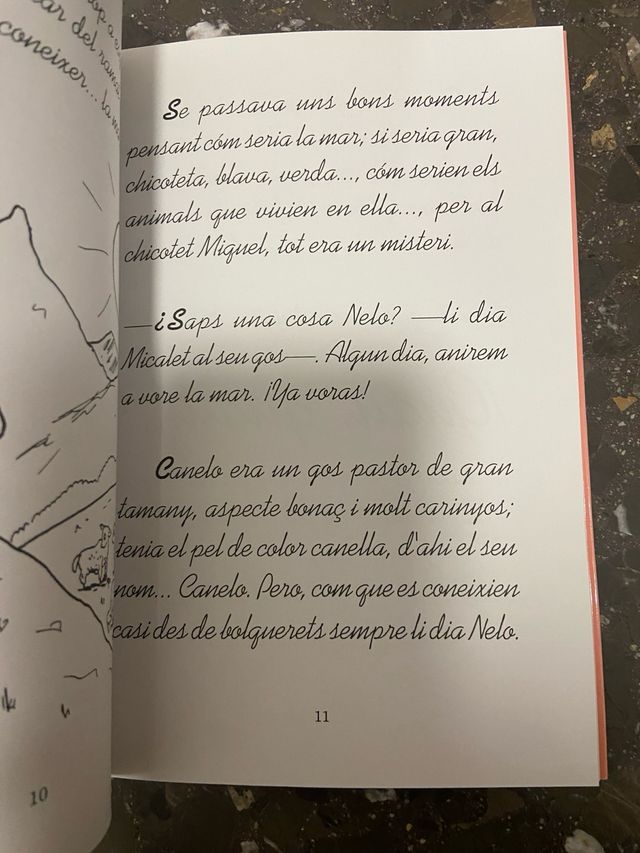 coneixer... la m
Se passava uns bons moments
pensant cóm seria la mar; si seria gran,
chicoteta, blava, verda..., cóm serien els
animals que vivien en ella..., per al
chicotet Miquel, tot era un misteri.
—¿Saps una cosa Nelo? —li dia
Micalet al seu gos—. Algun dia, anirem
a vore la mar. ¡Ya voras!
Canelo era un gos pastor de gran
tamany, aspecte bonaç i molt carinyos;
tenia el pel de color canella, d'ahi el seu
nom... Canelo. Pero, com que es coneixien
casi des de bolquerets sempre li dia Nelo.
11
10